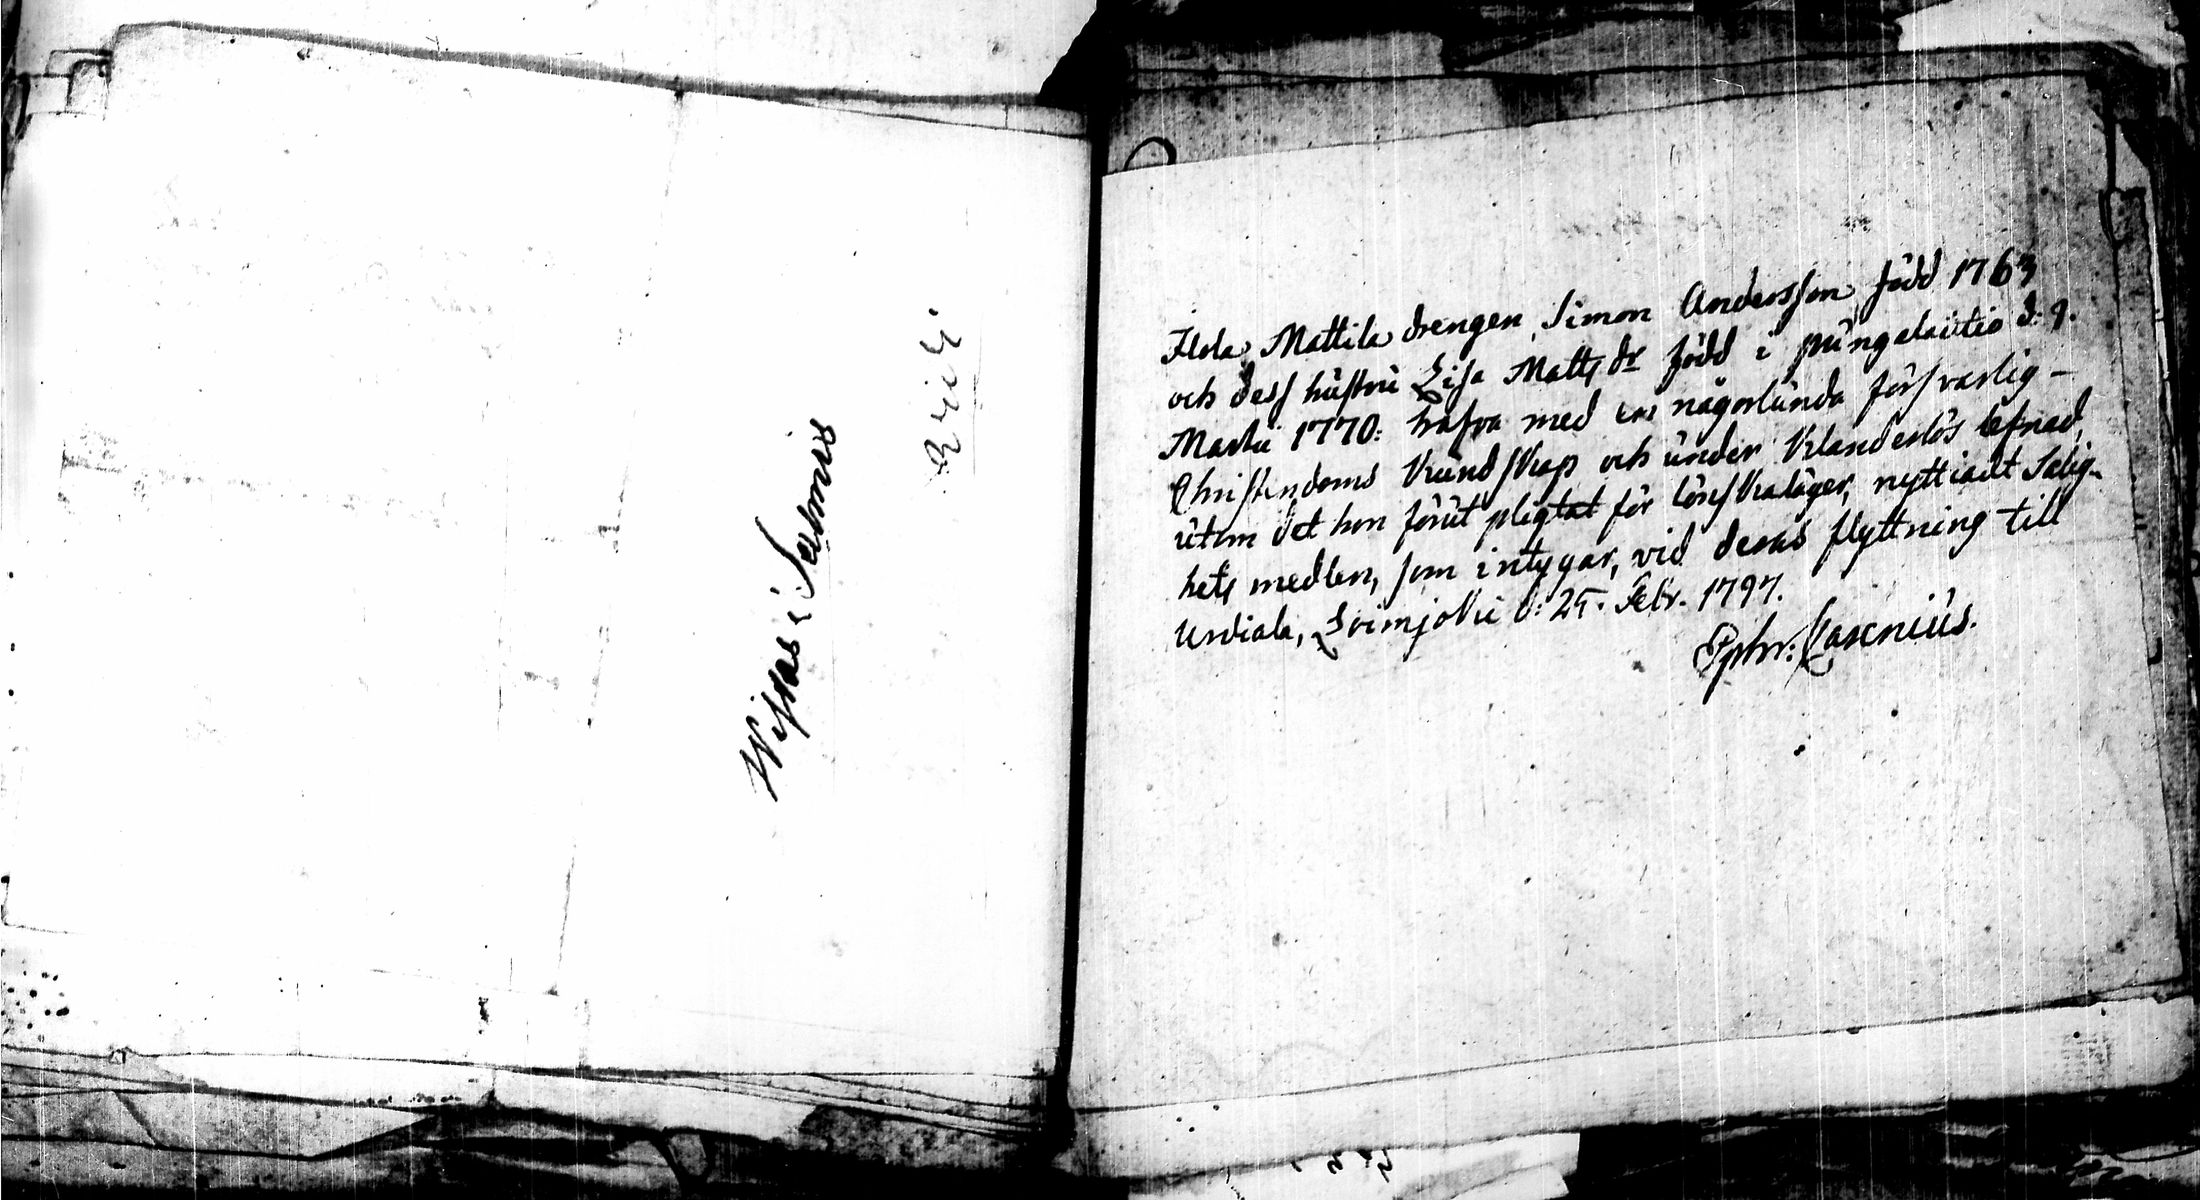 Wissas i Salmis
Flola Mattila drengen Simon Andersson född 1763
och dess hustru Lisa Matts dr född i pungalaitio d: 9.
Martii 1770: hafva med en någorlunda försvarlig-
Christendoms Kundskap och under Klanderlös lefnad,
utom det hon förut pligtat för lönskaläger, nyttiadt Salig-
hets medlen, som intygar, vid deras flyttning till
Urdiala, Loimjoki d: 25. Febr. 1797.
Ephr: Caxenius.